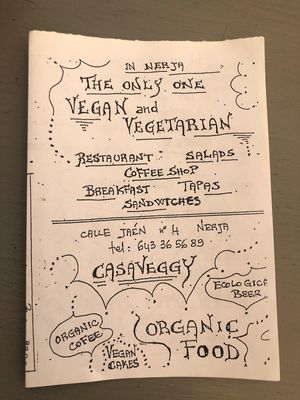 IN NERJA
THE ONLY ONE
VEGAN and
VEGETARIAN
RESTAURANT SALADS
COFFEE SHOP
BREAKFAST TAPAS
SANDWICHES
CALLE JAÉN nº 4 NERJA
tel: 643 36 56 89
CASAVEGGY
ECOLOGICA
BEER
ORGANIC
COFEE
VEGAN
CAKES
ORGANIC
FOOD